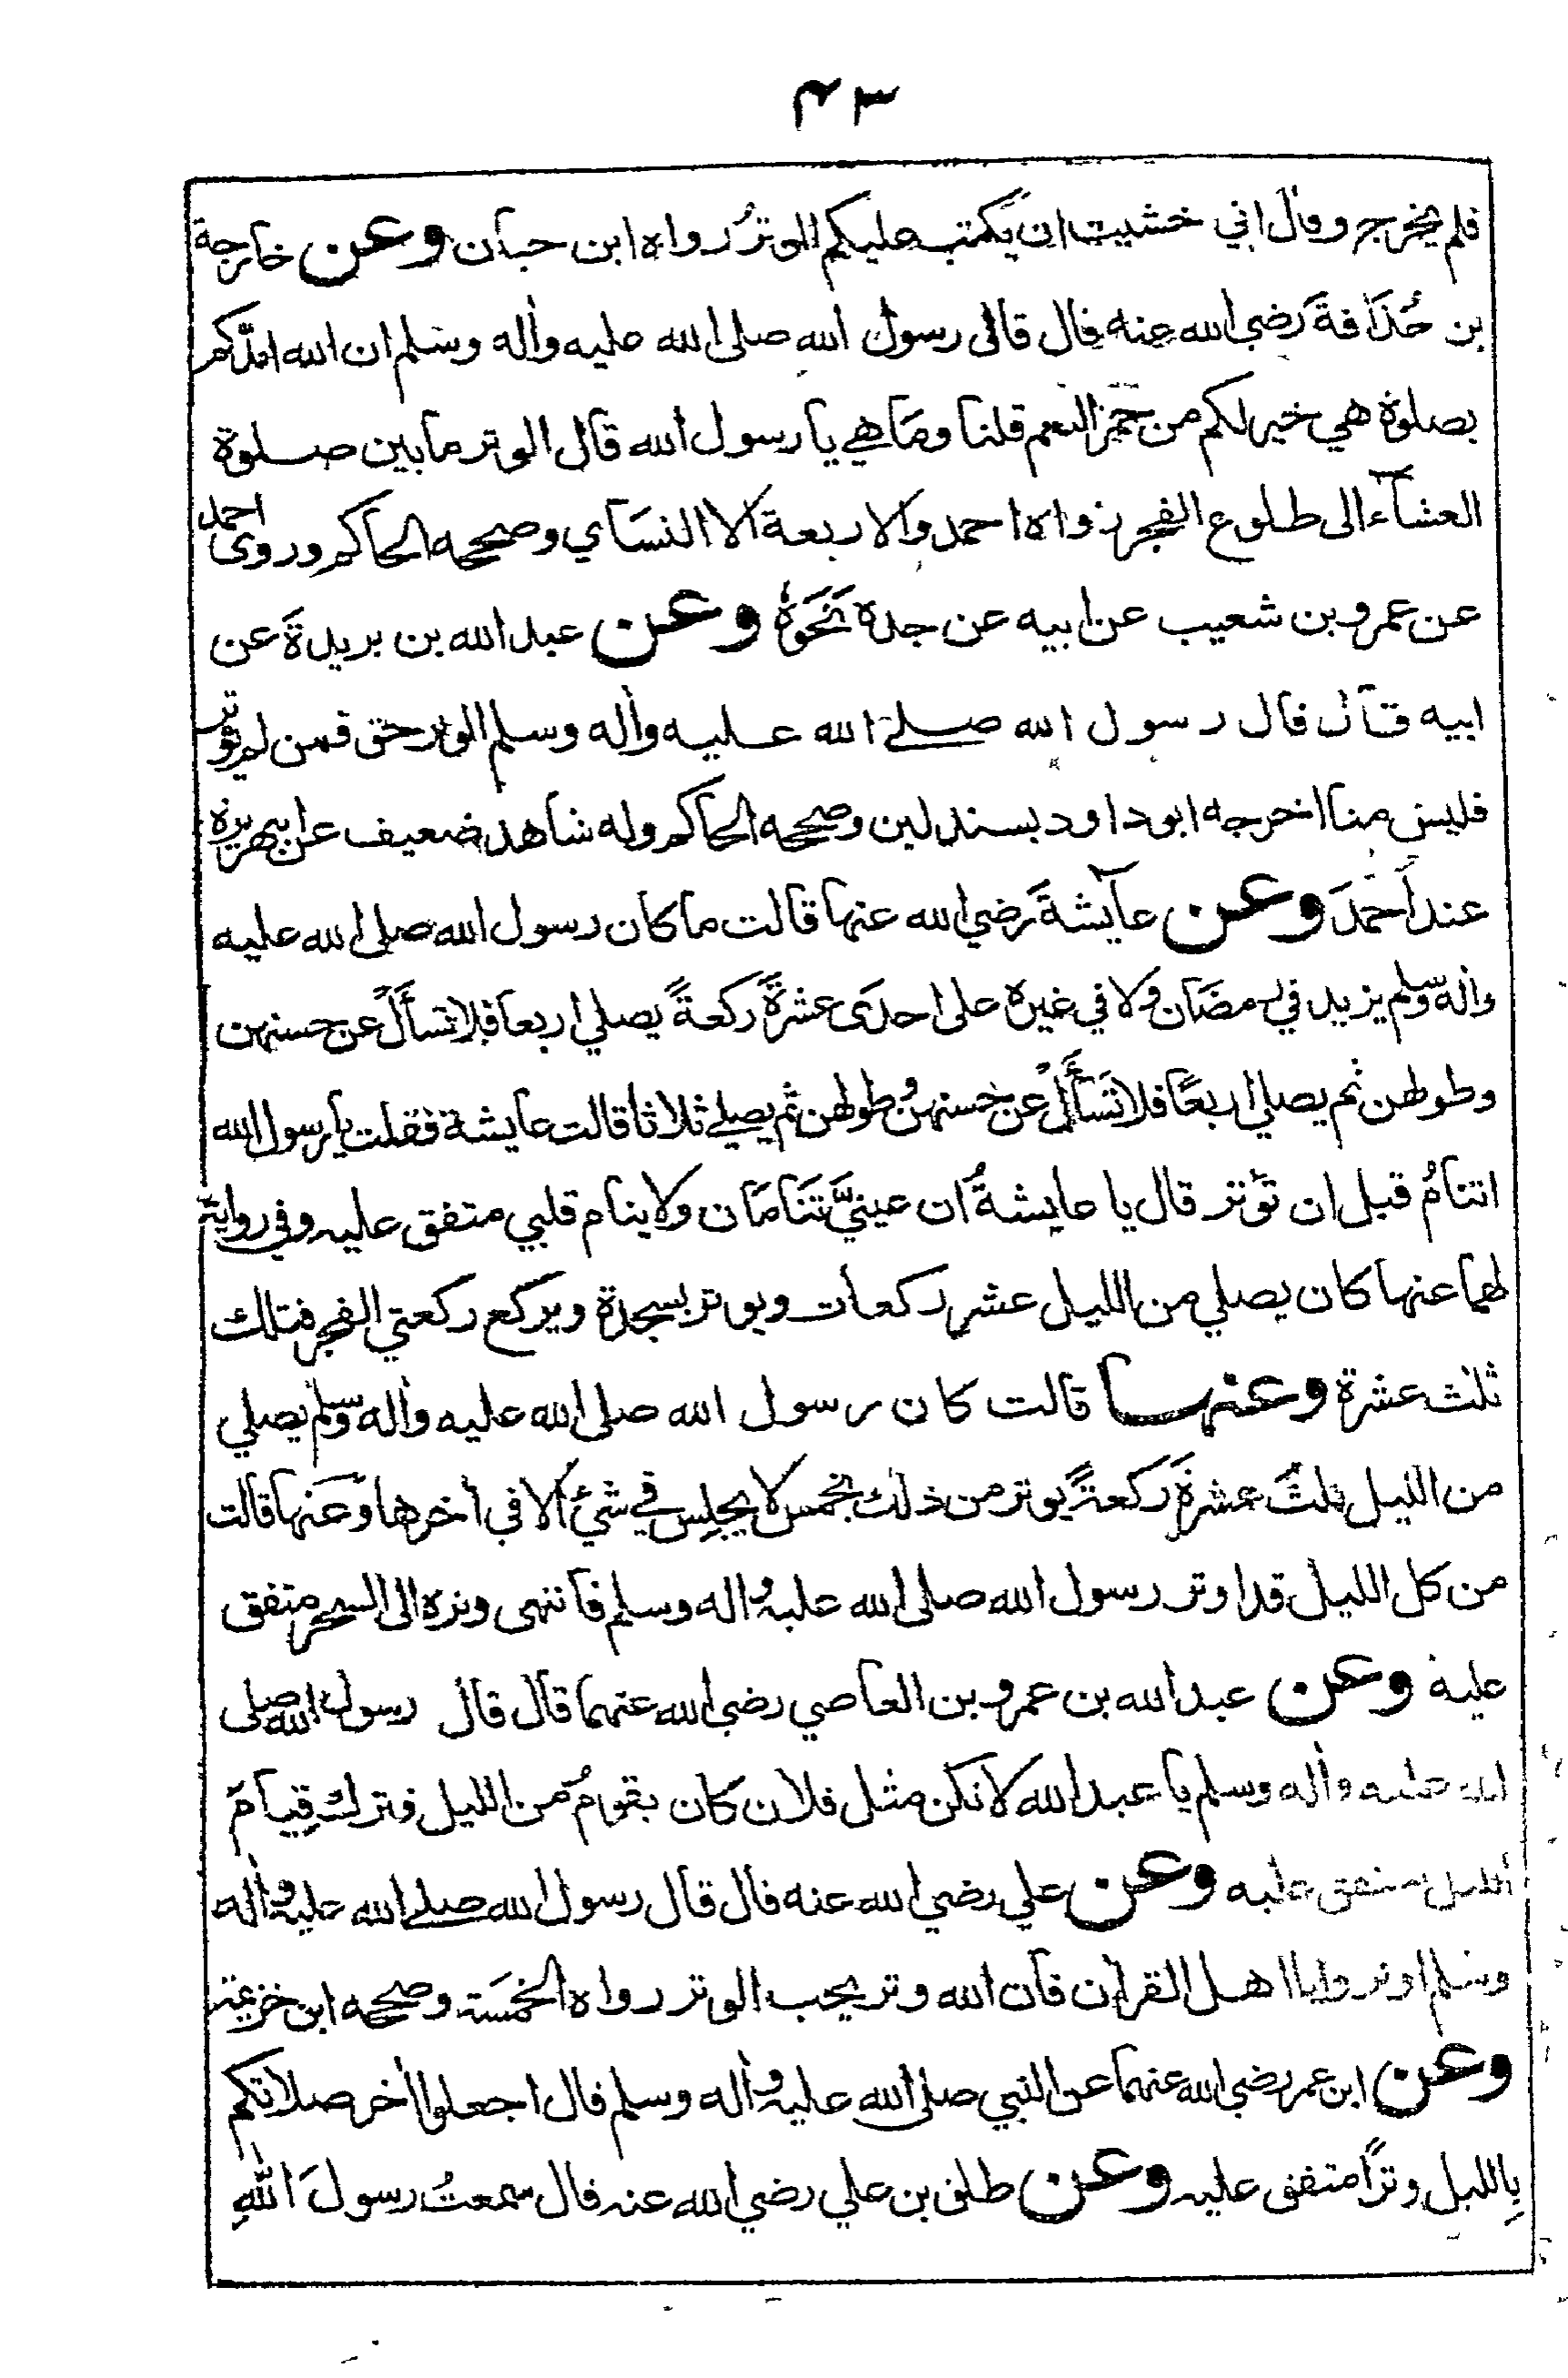 ٤٣
فلم يخرج وقال اني خشيت ان يكتب عليكم الوترُ رواه ابن حبان وعن خارجة
بن حُذَافةَ رَضي الله عنه قال قال رسول الله صلى الله عليه واٰله وسَلم ان الله امدَّكم
بصلوة هي خير لكم من حُمُرِ النعم قلنا ومَا هي يا رسول الله قال الوتر ما بين صلوة
العشآء الى طلوع الفجر رواه احمد والاربعة الا النسَاي وصححه الحاكم وروى احمد
عن عمرو بن شعيب عن ابيه عن جده نَحَوَهُ وعن عبد الله بن بريدةَ عن
ابيه قال قال رسول الله صلى الله عليه واٰله وسلم الوتر حق فمن لم يوتر
فليس منا اخرجه ابو داود بسند لين وصححه الحاكم وله شاهد ضعيف عن ابي هريرة
عند اَحمدَ وعن عآيشةَ رَضي الله عنها قالت ما كان رسول الله صلى الله عليه
واٰله وسلم يزيد في رمضَان ولا في غيره على احدَى عشرةَ ركعةً يصلي اربعا فلا تسأَلْ عن حسنهن
وطولهن ثم يصلي اربعًا فلا تَسأَلْ عن حسنهن وطولهن ثم يصلي ثلاثا قالت عايشة فقلت يا رسول الله
اتنامُ قبل ان تؤتر قال يا عايشةُ ان عينيَّ تَنَامَان ولا ينام قلبي متفق عليه وفي رواية
لهما عنها كان يصلي من الليل عشر ركعات ويوتر بسجدة ويركع ركعتي الفجر فتلك
ثلٰث عشرة وعنها قالت كان رسول الله صلى الله عليه واٰله وسلم يصلي
من الليل ثلٰثَ عشرةَ ركعةً يوتر من ذلك بخمس لا يجلِس في شيْءٍ الا في اٰخرها وعَنها قالت
من كل الليل قد اوتر رسول الله صلى الله عليه واٰله وسلم فانتهى وتره الى السحر متفق
عليه وعن عبد الله بن عمرو بن العاصي رضي الله عنهما قال قال رسول الله صلى
الله عليه واٰله وسلم يا عبد الله لا تكن مثل فلان كان يقومُ من الليل فترك قِيامَ
الليل متفق عليه وعن علي رضي الله عنه قال قال رسول الله صلى الله عليه واٰله
وسَلم اوتروا يا اهل القراٰن فان الله وتر يحب الوتر رواه الخمسَة وصححه ابن خزيمة
وعن ابن عمر رضي الله عنهما عن النبي صلى الله عليه واٰله وسلم قال اجعلوا اٰخر صلاتكم
بِالليل وترًا متفق عليه وعن طلق بن علي رضي الله عنه قال سمعتُ رسولَ اللّٰهِ